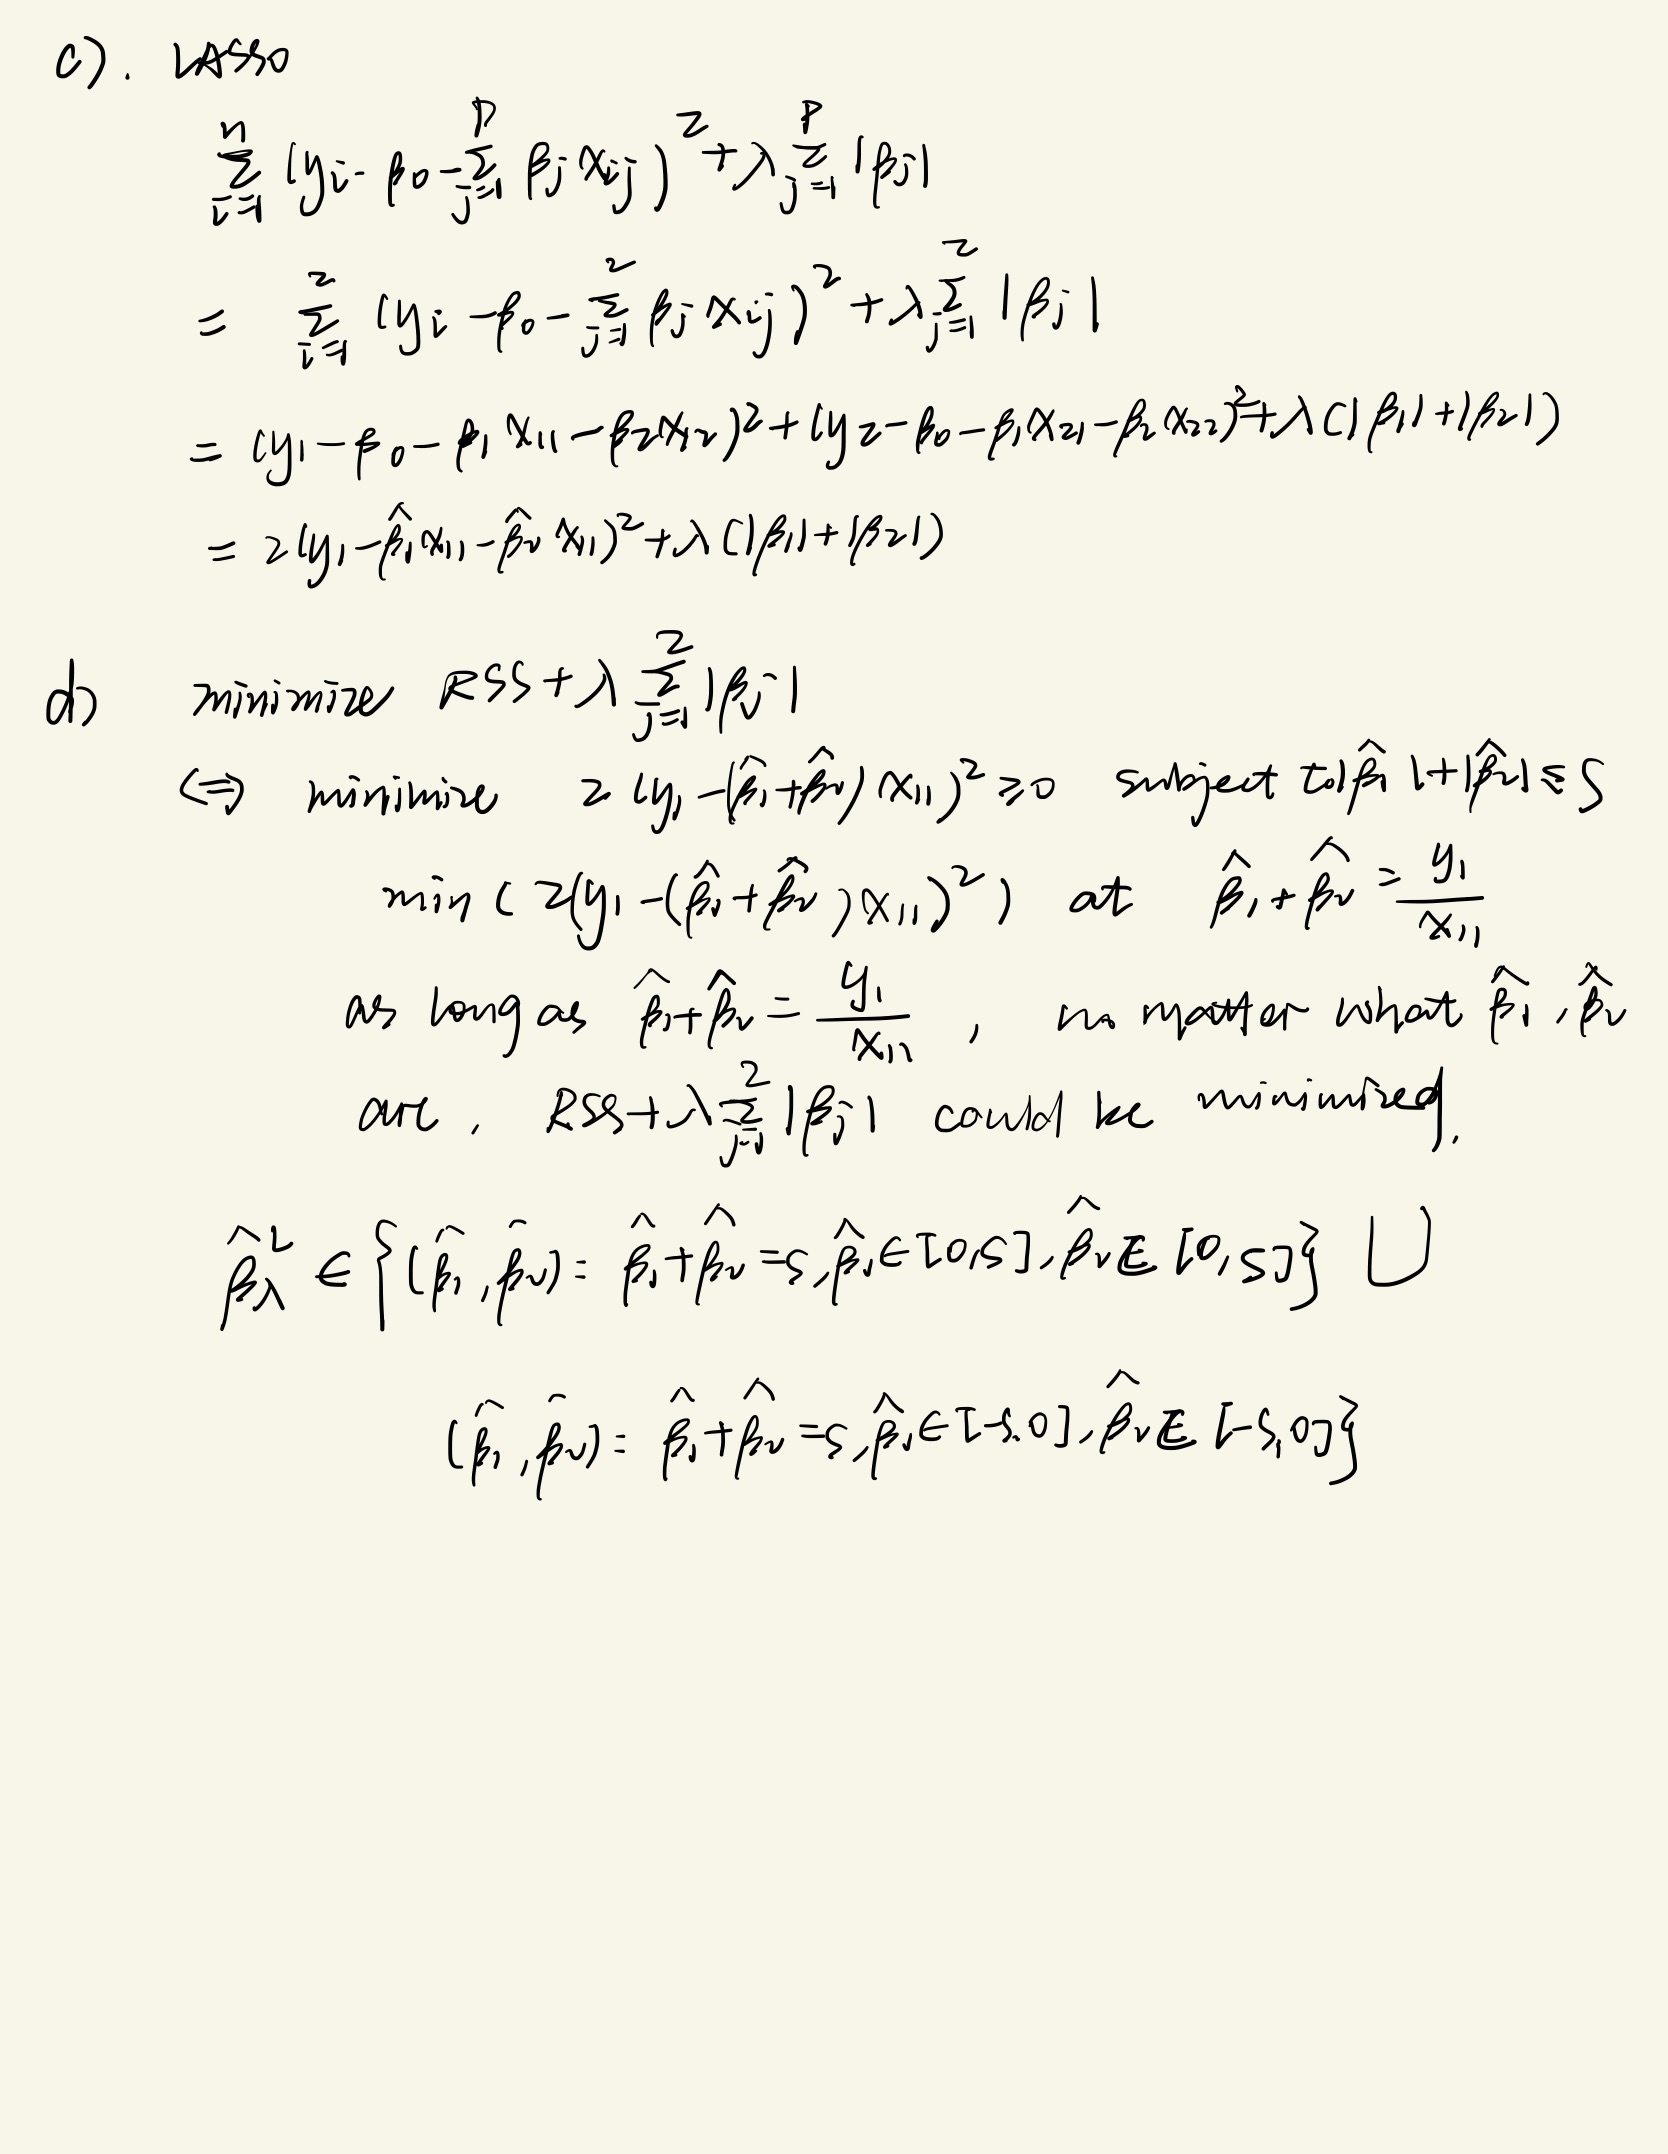 c). LASSO
∑_{i=1}^{n} (y_i - β_0 - ∑_{j=1}^{p} β_j x_{ij})^2 + λ ∑_{j=1}^{p} |β_j|
= ∑_{i=1}^{2} (y_i - β_0 - ∑_{j=1}^{2} β_j x_{ij})^2 + λ ∑_{j=1}^{2} |β_j|
= (y_1 - β_0 - β_1 x_{11} - β_2 x_{12})^2 + (y_2 - β_0 - β_1 x_{21} - β_2 x_{22})^2 + λ (|β_1| + |β_2|)
= 2(y_1 - β̂_1 x_{11} - β̂_2 x_{11})^2 + λ (|β_1| + |β_2|)
d) minimize RSS + λ ∑_{j=1}^{2} |β_j|
⇔ minimize 2 (y_1 - (β̂_1 + β̂_2) x_{11})^2 ≥ 0 subject to |β̂_1| + |β̂_2| ≤ S
min ( 2(y_1 - (β̂_1 + β̂_2) x_{11})^2 ) at β̂_1 + β̂_2 = y_1 / x_{11}
as long as β̂_1 + β̂_2 = y_1 / x_{11} , no matter what β̂_1 , β̂_2
are , RSS + λ ∑_{j=1}^{2} |β_j| could be minimized.
β̂_λ^L ∈ { (β̂_1 , β̂_2) : β̂_1 + β̂_2 = s , β̂_1 ∈ [0, s] , β̂_2 ∈ [0, s] } ∪
(β̂_1 , β̂_2) : β̂_1 + β̂_2 = s , β̂_1 ∈ [-s, 0] , β̂_2 ∈ [-s, 0] }